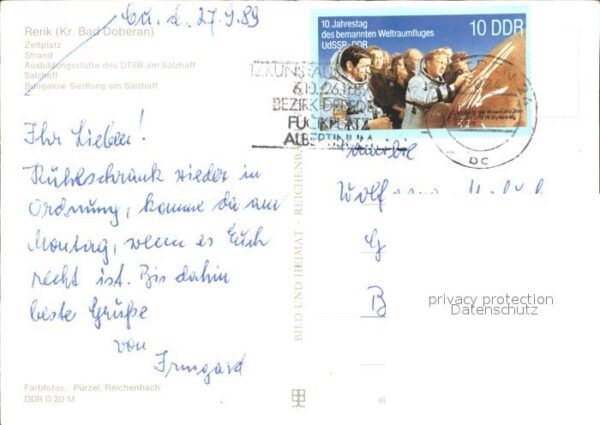 27.9.89
Rerik (Kr. Bad Doberan)
Zeltplatz
Strand
Ausbildungsstätte des DTSB am Salzhaff
Salzhaff
Bungalow-Siedlung am Salzhaff
Ihr Lieben!
Kühlschrank wieder in
Ordnung, komme da am
Montag, wenn es Euch
recht ist. Bis dahin
beste Grüße
von
Irmgard
Farbfotos: Pürzel, Reichenbach
DDR 0.20 M
BILD UND HEIMAT · REICHENBACH
10. Jahrestag
des bemannten Weltraumfluges
UdSSR-DDR
10 DDR
BEZIRK DRESDEN
FUCIKPLATZ
ALBERTINUM
bc
Familie
Wolfgang
G
B
privacy protection
Datenschutz